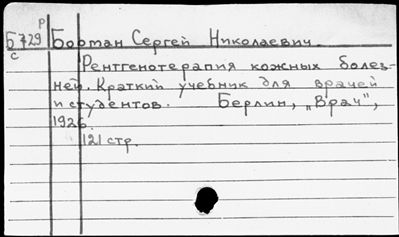 Р
Б729 Бобман Сергей Николаевич.
С
Рентгенотерапия кожных болез-
ней. Краткий учебник для врачей
и студентов. Берлин, „Врач",
1926.
121 стр.